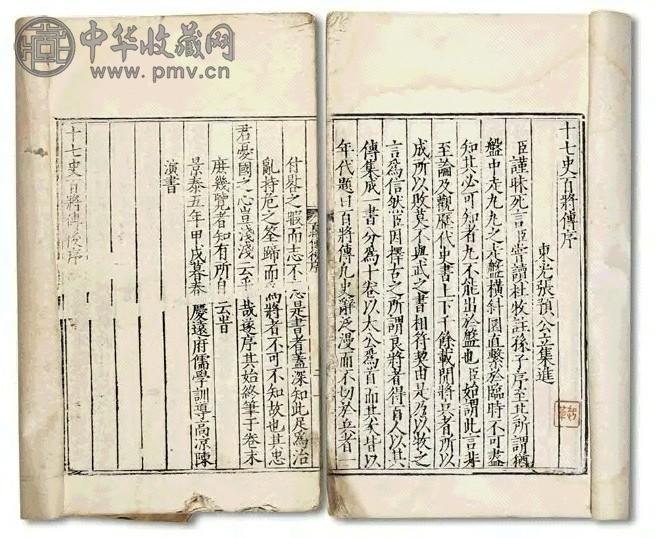 中华收藏网
www.pmv.cn
十七史百將傳序
東光張預公立集進
臣謹昧死言臣嘗讀杜牧註孫子序至其所謂猶
盤中走丸丸之走盤橫斜圓直繫於臨時不可盡
知其必可知者丸不能出於盤也臣始謂此言非
至論及觀歷代史書上下千餘載間將兵者所以
成所以敗莫不與武之書相符契由是乃以牧之
言為信然臣因擇古之所謂良將者得百人以其
傳集成一書分為十卷以太公為首而其次皆以
年代題曰百將傳凡史辭泛漫而不切於兵者一
付畧之暇而志不忘是書者蓋深知此足為治
亂持危之筌蹄而為將者不可不知故也其忠
君憂國之心豈淺淺云乎哉遂序其始終筆于卷末
庶幾覽者知有所自云昔
景泰五年甲戌暮春慶遠府儒學訓導高凉陳
演書
十七史百將傳後序